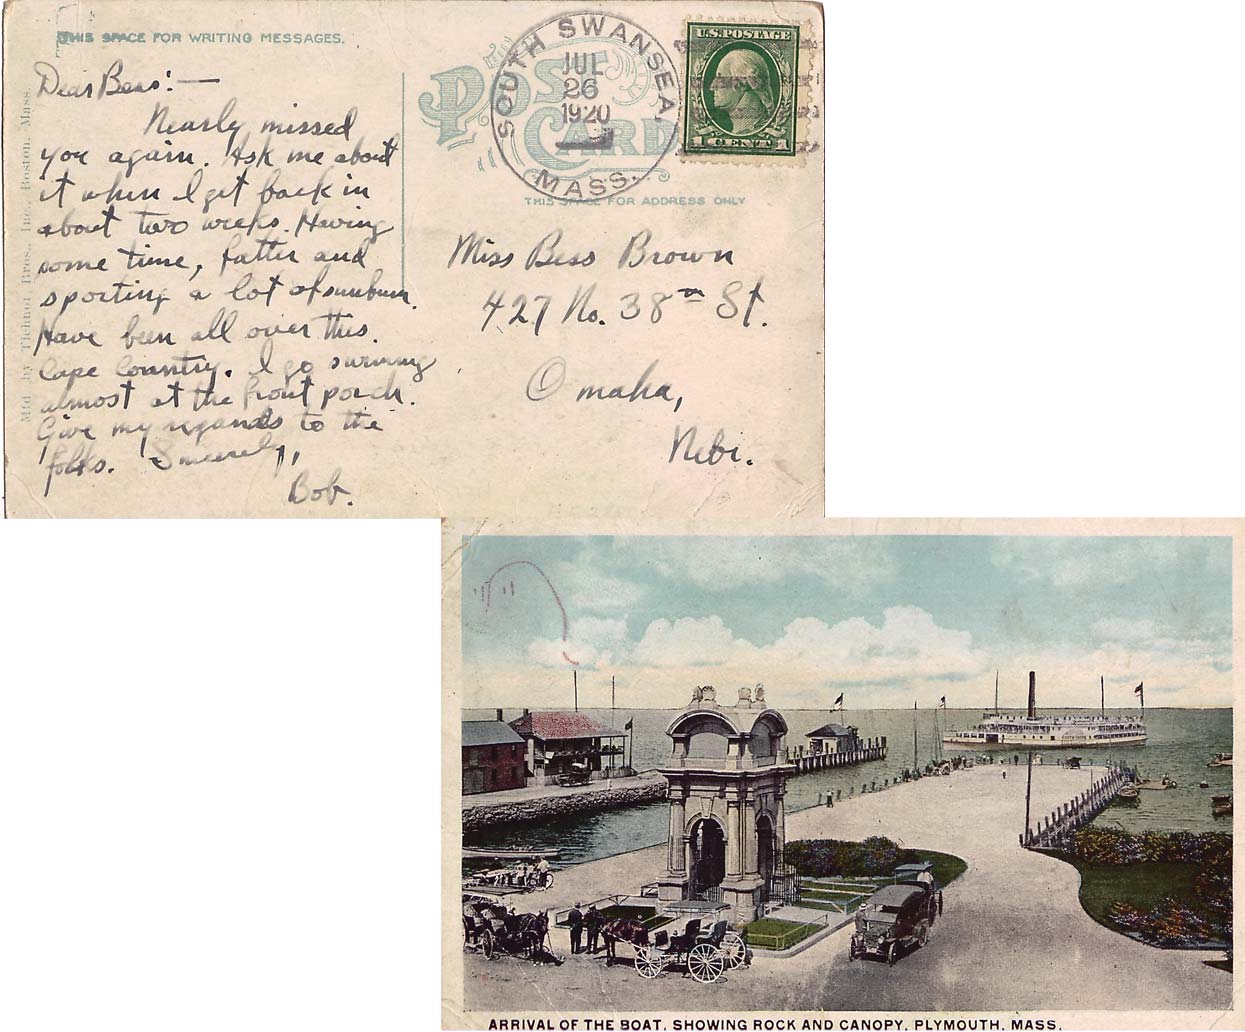 THIS SPACE FOR WRITING MESSAGES.
Dear Bess:—
Nearly missed
you again. Ask me about
it when I get back in
about two weeks. Having
some time, fatter and
sporting a lot of sunburn.
Have been all over this.
Cape Country. I go swimming
almost at the front porch.
Give my regards to the
folks. Sincerely,
Bob.
Mfd. by Tichnor Bros., Inc., Boston, Mass.
POST CARD
SOUTH SWANSEA,
JUL
26
1920
MASS.
U.S. POSTAGE
1 CENT 1
THIS SPACE FOR ADDRESS ONLY
Miss Bess Brown
427 No. 38th St.
Omaha,
Nebr.
ARRIVAL OF THE BOAT, SHOWING ROCK AND CANOPY, PLYMOUTH, MASS.